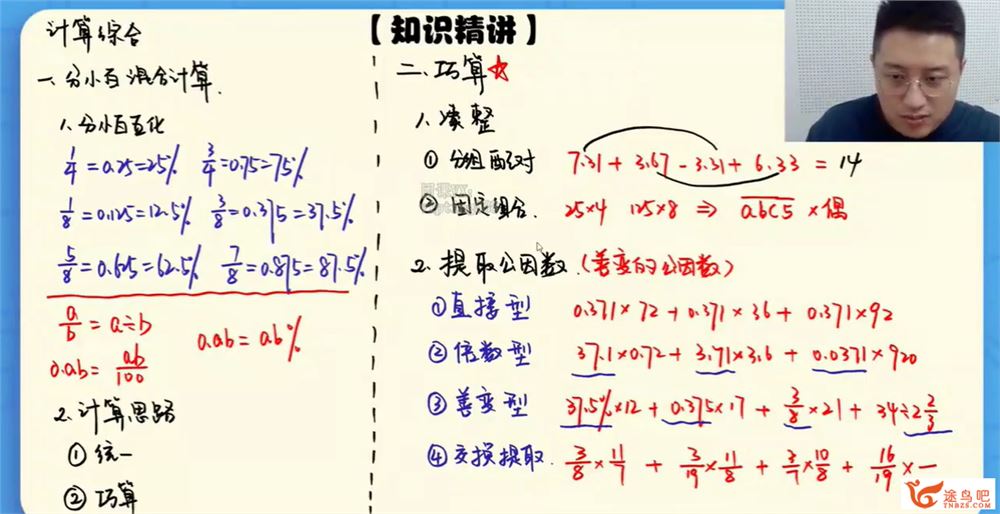 【知识精讲】
计算综合
一、分小百混合计算
1、分小百互化
1/4=0.25=25% 3/4=0.75=75%
1/8=0.125=12.5% 3/8=0.375=37.5%
5/8=0.625=62.5% 7/8=0.875=87.5%
a/b=a÷b
0.ab=ab/100
0.ab=ab%
2.计算思路
①统一
②巧算
二、巧算☆
1、凑整
①分组配对 7.31+3.67-3.31+6.33=14
②固定组合. 25×4 125×8 ⇒ abc5×偶
2.提取公因数.(善变的公因数)
①直接型 0.371×72+0.371×36+0.371×92
②倍数型 37.1×0.72+3.71×3.6+0.0371×920
③善变型 37.5%×12+0.375×17+3/8×21+34÷2 2/3
④交换提取. 3/8×11/7+3/19×11/8+3/7×10/8+16/19×一
途鸟吧
TNBZS.COM